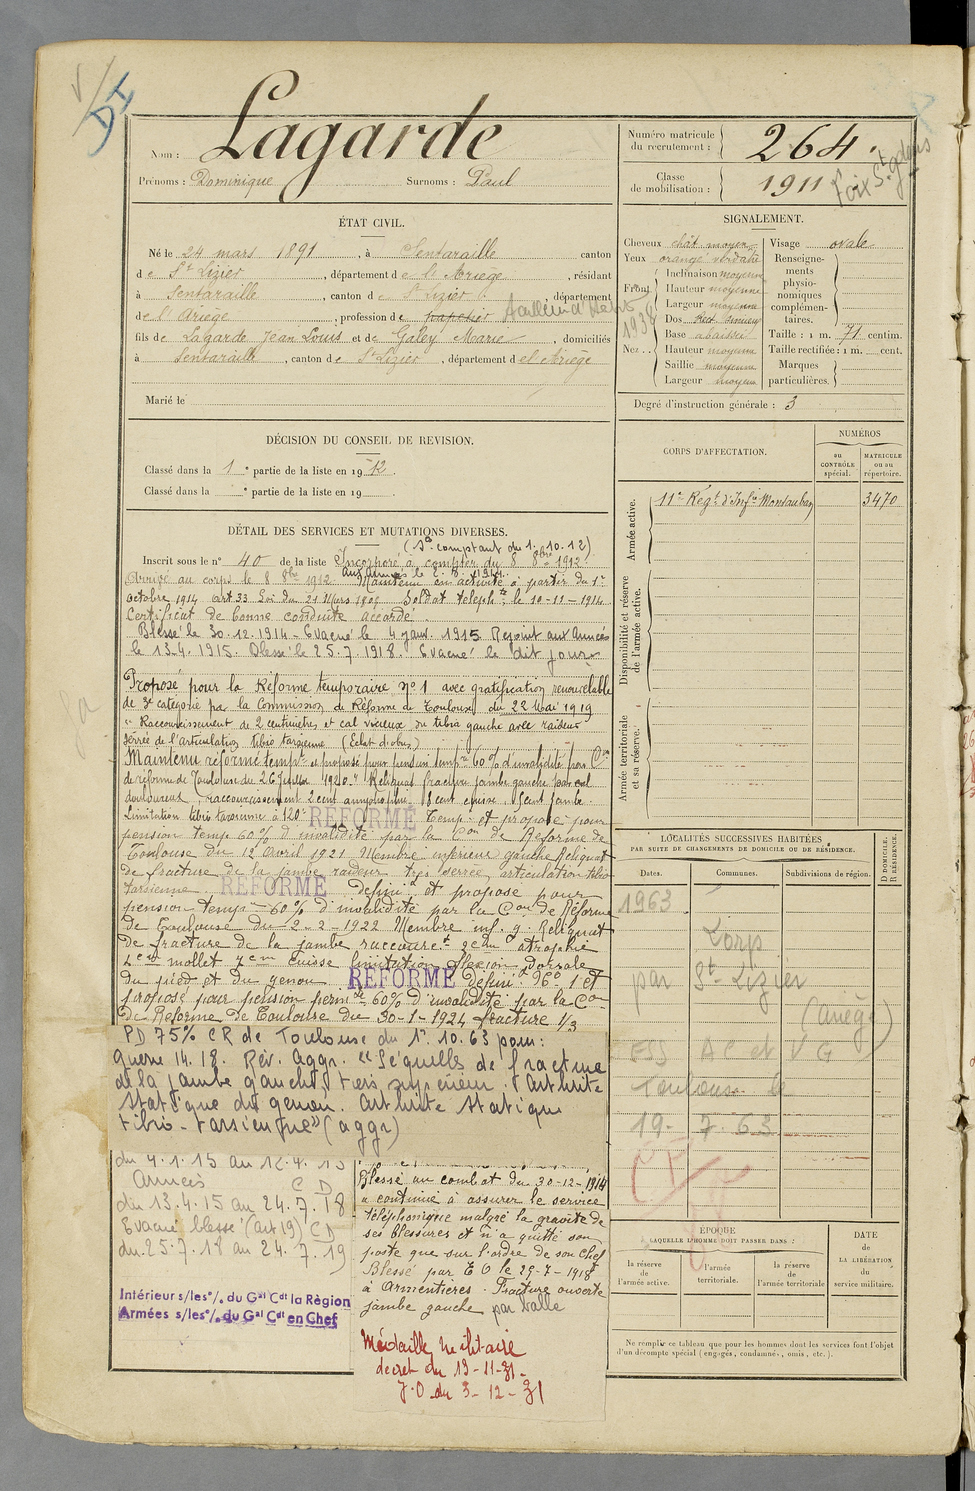 Nom : Lagarde
Prénoms : Dominique Surnoms : Paul
Numéro matricule du recrutement : 264.
Classe de mobilisation : 1911
Foix St gdens
ÉTAT CIVIL.
Né le 24 mars 1891, à Sentaraille canton
de St Lizier, département de l'Ariège, résidant
à Sentaraille, canton de St Lizier, département
de l'Ariège, profession de
1938
fils de Lagarde Jean Louis et de Galey Marie, domiciliés
à Sentaraille, canton de St Lizier, département de l'Ariège
Marié le
SIGNALEMENT.
Cheveux chât moyen
Yeux orangé verdatre
Front
Inclinaison moyenne
Hauteur moyenne
Largeur moyenne
Nez
Dos Rect. sinueux
Base abaissée
Hauteur moyenne
Saillie moyenne
Largeur moyen
Visage ovale
Renseignements physionomiques complémentaires.
Taille : 1 m. 71 centim.
Taille rectifiée : 1 m. cent.
Marques particulières.
Degré d'instruction générale : 3
DÉCISION DU CONSEIL DE REVISION.
Classé dans la 1e partie de la liste en 1912.
Classé dans la e partie de la liste en 19
CORPS D'AFFECTATION.
NUMÉROS
au CONTRÔLE spécial.
MATRICULE ou au répertoire.
Armée active.
11e Régt d'Infie Montauban 3470
Disponibilité et réserve de l'armée active.
Armée territoriale et sa réserve.
DÉTAIL DES SERVICES ET MUTATIONS DIVERSES.
(Sce comptant du 1. 10. 12)
Inscrit sous le n° 40 de la liste Incorporé à compter du 8 8bre 1912
aux Armées le 2. 8. 1914
Arrivé au corps le 8 8bre 1912 Maintenu en activité à partir du 1er
Octobre 1914 Art 33 Loi du 21 Mars 1905 Soldat téléphte le 10-11-1914
Certificat de bonne conduite accordé.
Blessé le 30.12.1914 - Evacué le 4 janv. 1915 Rejoint aux Armées
le 13.4.1915. Blessé le 25.7.1918. Evacué le dit jour
Proposé pour la Réforme temporaire n° 1 avec gratification renouvelable
de 3e catégorie par la Commission de Réforme de Toulouse du 22 Mai 1919
" Raccourcissement de 2 centimètres et cal vicieux du tibia gauche avec raideur
serrée de l'articulation tibio tarsienne (Eclat d'obus)
Maintenu réformé tempre et proposé pour pension tempre 60% d'invalidité par Con
de réforme de Toulouse du 26 Juillet 1920. " Reliquat fracture jambe gauche par cal
douloureux, raccourcissement 2 cent amyotrophie 8 cent cuisse, 5 cent jambe.
Limitation tibio tarsienne à 120° REFORMÉ Temp. et proposé pour
pension temp 60% d'invalidité par la Con de Réforme de
Toulouse du 12 Avril 1921 Membre inférieur gauche Reliquat
de fracture de la jambe raideur très serrée articulation tibio
tarsienne. REFORMÉ définif et proposé pour
pension temp 60% d'invalidité par la Con de Réforme
de Toulouse du 2-2-1922 Membre inf. g. Reliquat
de fracture de la jambe raccourct 3cm atrophie
mollet cuisse limitation flexion dorsale
du pied et du genou REFORMÉ définif N° 1 et
proposé pour pension permte 60% d'invalidité par la Con
de Réforme de Toulouse du 30-1-1924 fracture 1/3
PD 75% CR de Toulouse du 1er.10.63 pour :
guerre 14.18. Rév. Aggr. "Séquelles de fracture
de la jambe gauche, tiers supérieur. Arthrite
statique du genou. Arthrite statique
tibio-tarsienne" (aggr)
du 4.1.15 au 12.4.15
Armées CD
du 13.4.15 au 24.7.18
Evacué blessé (art 19) CD
du 25.7.18 au 24.7.19
Intérieur s/les °/. du Gal Cdt la Région
Armées s/les °/. du Gal Cdt en Chef
Blessé au combat du 30-12-1914
a continué à assurer le service
téléphonique malgré la gravité de
ses blessures et n'a quitté son
poste que sur l'ordre de son chef
Blessé par E O le 25-7-1918
à Armentières. Fracture ouverte
jambe gauche par balle
Médaille militaire
décret du 19-11-31.
J.O du 3-12-31
LOCALITÉS SUCCESSIVES HABITÉES
PAR SUITE DE CHANGEMENTS DE DOMICILE OU DE RÉSIDENCE.
Dates. Communes. Subdivisions de région.
D DOMICILE. R RÉSIDENCE.
1963
Lorp
par St Lizier
(Ariège)
ESS AC et VG
Toulouse le
19. 7. 63
ÉPOQUE
LAQUELLE L'HOMME DOIT PASSER DANS :
la réserve de l'armée active.
l'armée territoriale.
la réserve de l'armée territoriale
DATE de LA LIBÉRATION du service militaire.
Ne remplir ce tableau que pour les hommes dont les services font l'objet
d'un décompte spécial (engagés, condamnés, omis, etc.).